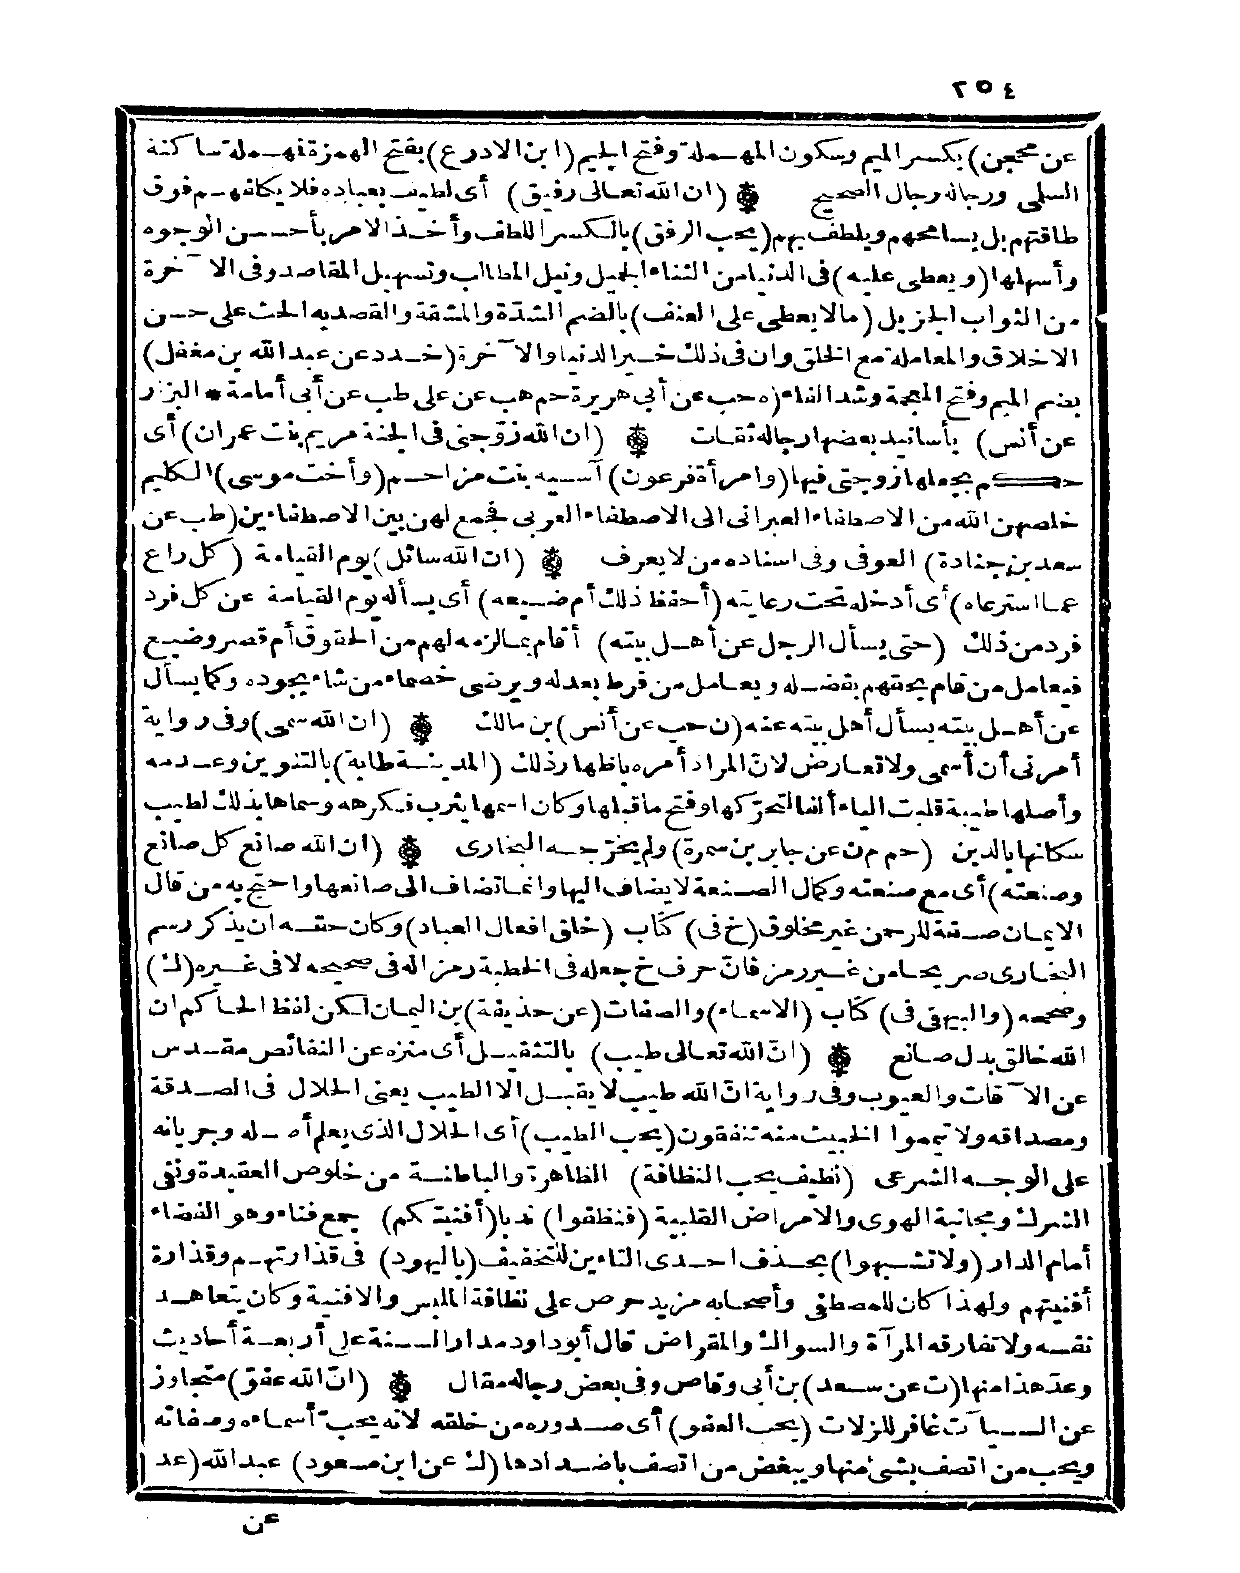 ٢٥٤
عن محجن) بكسر الميم وسكون المهملة وفتح الجيم (ابن الادرع) بفتح الهمزة فمهملة ساكنة
السلمى ورجاله رجال الصحيح ۞ (ان الله تعالى رفيق) أى لطيف بعباده فلا يكلفهم فوق
طاقتهم بل يسامحهم ويلطف بهم (يحب الرفق) بالكسر اللطف وأخذ الامر بأحسن الوجوه
وأسهلها (ويعطى عليه) فى الدنيا من الثناء الجميل ونيل المطالب وتسهيل المقاصد وفى الآخرة
من الثواب الجزيل (مالا يعطى على العنف) بالضم الشدّة والمشقة والقصد به الحث على حسن
الاخلاق والمعاملة مع الخلق وان فى ذلك خير الدنيا والآخرة (خدد عن عبد الله بن مغفل)
بضم الميم وفتح المعجمة وشد الفاء (ه حب عن أبى هريرة حم هب عن على طب عن أبى أمامة * البزار
عن أنس) بأسانيد بعضها رجاله ثقات ۞ (ان الله زوّجنى فى الجنة مريم بنت عمران) أى
حكم بجعلها زوجتى فيها (وامرأة فرعون) آسيه بنت مزاحم (وأخت موسى) الكليم
خلصهن الله من الاصطفاء العبرانى الى الاصطفاء العربى فجمع لهن بين الاصطفاءين (طب عن
سعد بن جنادة) العوفى وفى اسناده من لا يعرف ۞ (ان الله سائل) يوم القيامة (كل راع
عما استرعاه) أى أدخله تحت رعايته (أحفظ ذلك أم ضيعه) أى يسأله يوم القيامة عن كل فرد
فرد من ذلك (حتى يسأل الرجل عن أهل بيته) أقام بما لزمه لهم من الحقوق أم قصر وضيع
فيعامل من قام بحقهم بفضله ويعامل من فرط بعدله ويرضى خصماء من شاء بجوده وكما يسأل
عن أهل بيته يسأل أهل بيته عنه (ن حب عن أنس) بن مالك ۞ (ان الله سمى) وفى رواية
أمرنى أن أسمى ولا تعارض لانّ المراد أمره باظهار ذلك (المدينة طابة) بالتنوين وعدمه
وأصلها طيبة قلبت الياء ألفا لتحرّكها وفتح ما قبلها وكان اسمها يثرب فكرهه وسماها بذلك لطيب
سكانها بالدين (حم م ن عن جابر بن سمرة) ولم يخرّجه البخارى ۞ (ان الله صانع كل صانع
وصنعته) أى مع صنعته وكمال الصنعة لا يضاف اليها وانما تضاف الى صانعها واحتج به من قال
الايمان صفة للرحمن غير مخلوق (خ فى) كتاب (خلق افعال العباد) وكان حقه ان يذكر رسم
البخارى صريحا من غير رمز فانّ حرف خ جعله فى الخطبة رمزا له فى صحيحه لا فى غيره (ك)
وصححه (والبيهقى فى) كتاب (الاسماء) والصفات (عن حذيفة) بن اليمان لكن لفظ الحاكم ان
الله خالق بدل صانع ۞ (انّ الله تعالى طيب) بالتثقيل أى منزه عن النقائص مقدس
عن الآفات والعيوب وفى رواية انّ الله طيب لا يقبل الا الطيب يعنى الحلال فى الصدقة
ومصداقه ولا تيمموا الخبيث منه تنفقون (يحب الطيب) أى الحلال الذى يعلم أصله وجريانه
على الوجه الشرعى (نظيف يحب النظافة) الظاهرة والباطنة من خلوص العقيدة ونفى
الشرك ومجانبة الهوى والامراض القلبية (فنظفوا) ندبا (أفنيتكم) جمع فناء وهو الفضاء
أمام الدار (ولا تشبهوا) بحذف احدى التاءين للتخفيف (باليهود) فى قذارتهم وقذارة
أفنيتهم ولهذا كان للمصطفى وأصحابه مزيد حرص على نظافة الملبس والافنية وكان يتعاهد
نفسه ولا تفارقه المرآة والسواك والمقراض قال أبو داود مدار السنة على أربعة أحاديث
وعدّ هذا منها (ت عن سعد) بن أبى وقاص وفى بعض رجاله مقال ۞ (انّ الله عفوّ) متجاوز
عن السيآت غافر للزلات (يحب العفو) أى صدوره من خلقه لانه يحبّ أسماءه وصفاته
ويحب من اتصف بشئ منها ويبغض من اتصف باضدادها (ك عن ابن مسعود) عبد الله (عد
عن